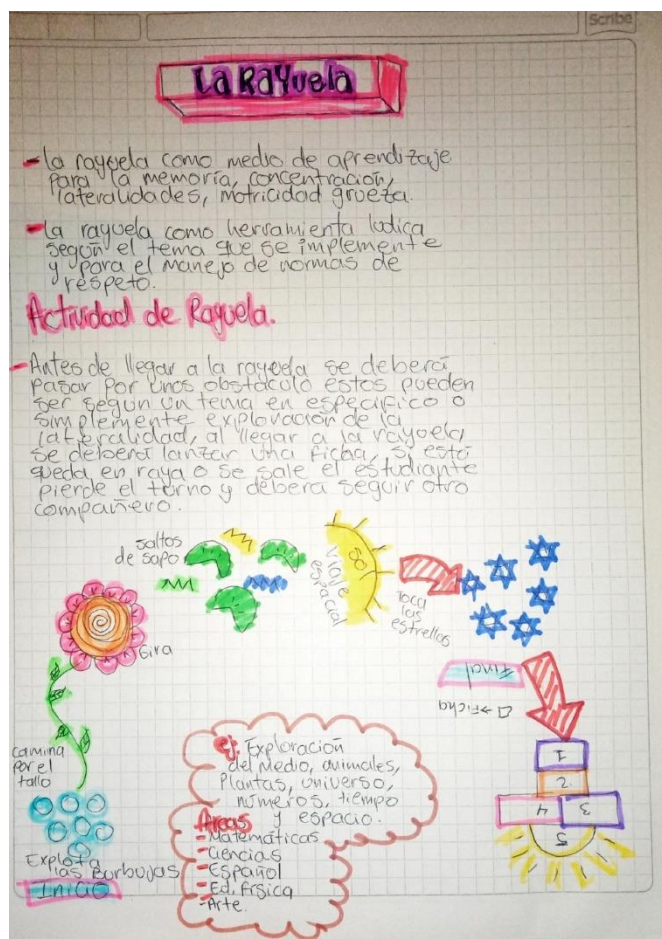 Scribe
La Rayuela
- la rayuela como medio de aprendizaje
para la memoria, concentración,
lateralidades, motricidad grueza.
- la rayuela como herramienta ludica
según el tema que se implemente
y para el manejo de normas de
respeto.
Actividad de Rayuela.
- Antes de llegar a la rayuela se deberá
pasar por unos obstáculo estos pueden
ser segun un tema en especifico o
simplemente exploración de la
lateralidad, al llegar a la rayuela
se deberá lanzar una ficha, si está
queda en raya o se sale el estudiante
pierde el turno y debera seguir otro
compañero.
saltos
de sapo
Sol
Viaje
espacial
Toca
las
estrellas
Gira
Final
→ Ficha
camina
por el
tallo
1
2
4 3
5
Explota
las Burbujas
Inicio
ej: Exploración
del Medio, animales,
Plantas, universo,
números, tiempo
y espacio.
Áreas
- Matemáticas
- Ciencias
- Español
- Ed. física
- Arte.